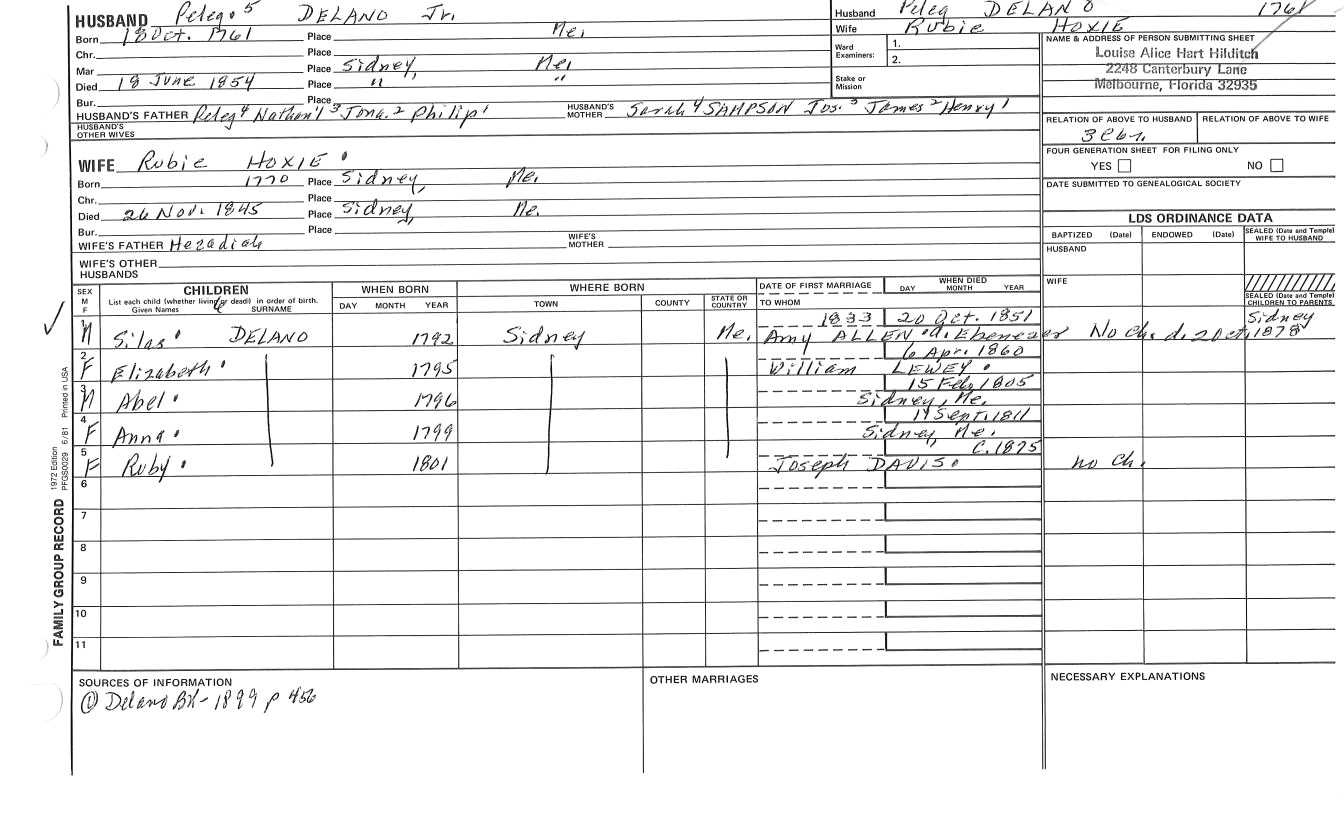 HUSBAND Peleg 5 DELANO Jr.
Born 18 Oct. 1761 Place Me.
Chr. Place
Mar Place Sidney, Me.
Died 18 June 1854 Place " "
Bur. Place
HUSBAND'S FATHER Peleg 4 Nathan'l 3 Jona. 2 Philip 1 HUSBAND'S MOTHER Sarah 4 SAMPSON Jos. 3 James 2 Henry 1
HUSBAND'S OTHER WIVES
Husband Peleg DELANO 1761
Wife Rubie HOXIE
Ward Examiners: 1.
2.
Stake or Mission
NAME & ADDRESS OF PERSON SUBMITTING SHEET
Louise Alice Hart Hilditch
2248 Canterbury Lane
Melbourne, Florida 32935
RELATION OF ABOVE TO HUSBAND RELATION OF ABOVE TO WIFE
FOUR GENERATION SHEET FOR FILING ONLY
YES NO
DATE SUBMITTED TO GENEALOGICAL SOCIETY
WIFE Rubie HOXIE
Born 1770 Place Sidney, Me.
Chr. Place
Died 26 Nov. 1845 Place Sidney, Me.
Bur. Place
WIFE'S FATHER Hezadiah WIFE'S MOTHER
WIFE'S OTHER HUSBANDS
LDS ORDINANCE DATA
BAPTIZED (Date) ENDOWED (Date) SEALED (Date and Temple) WIFE TO HUSBAND
HUSBAND
WIFE
SEALED (Date and Temple) CHILDREN TO PARENTS
SEX M F CHILDREN WHEN BORN WHERE BORN DATE OF FIRST MARRIAGE WHEN DIED
List each child (whether living or dead) in order of birth.
Given Names SURNAME DAY MONTH YEAR TOWN COUNTY STATE OR COUNTRY TO WHOM DAY MONTH YEAR
1833 20 Oct. 1851 Sidney
1 M Silas DELANO 1792 Sidney Me. Amy ALLEN d. Ebenezer No Ch. d. 20 Oct. 1878
6 Apr. 1860
2 F Elizabeth 1795 William LEWEY
15 Feb. 1805
3 M Abel 1796 Sidney, Me.
Sept. 1811
4 F Anna 1799 Sidney, Me.
C. 1875
5 F Ruby 1801 Joseph DAVIS no Ch.
6
7
8
9
10
11
FAMILY GROUP RECORD 1972 Edition PFGS0029 6/81 Printed in USA
SOURCES OF INFORMATION
① Delano Bk - 1899 p 456
OTHER MARRIAGES
NECESSARY EXPLANATIONS